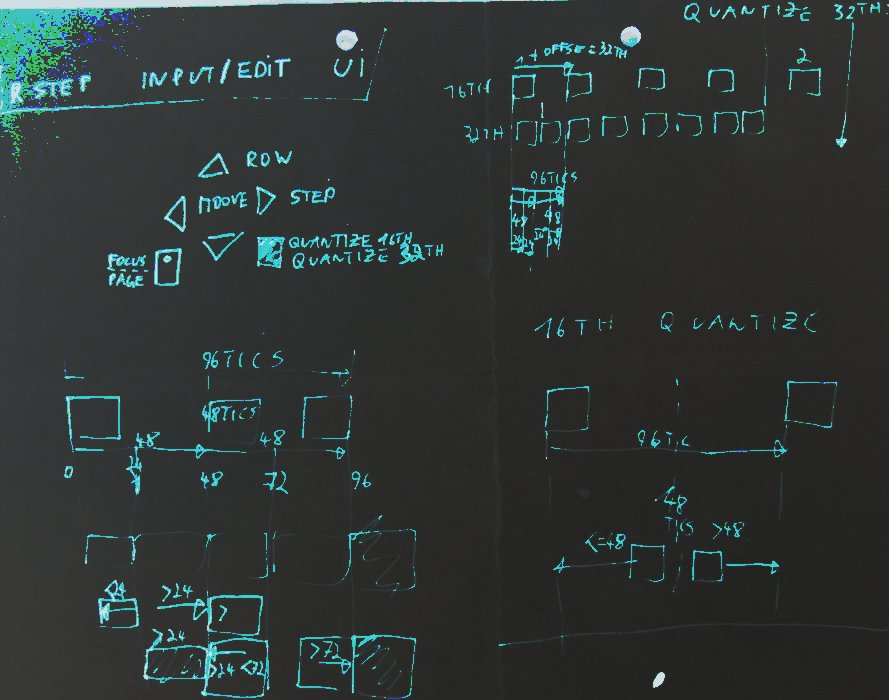 R-STEP INPUT/EDIT UI
ROW
MOVE STEP
QUANTIZE 16TH
QUANTIZE 32TH
FOCUS
PAGE
QUANTIZE 32TH
OFFSET=32TH
16TH
2
32TH
96TICS
48 48
24 24 24 24
96TICS
48TICS
48 48
24
0 48 72 96
>24 >
>24
>24 <72
>72
16TH QUANTIZE
96TIC
48
TICS
<=48 >48